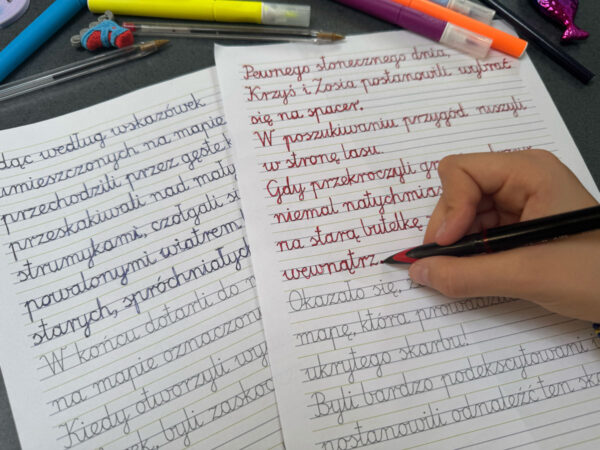 dąc według wskazówek
umieszczonych na mapie
przechodzili przez gęste
przeskakiwali nad mały
strumykami, czołgali si
powalonymi wiatrem
starych, spróchniałych
W końcu dotarli do
na mapie oznaczon
Kiedy otworzyli
byli zasko
Pewnego słonecznego dnia,
Krzyś i Zosia postanowili wybrać
się na spacer.
W poszukiwaniu przygód ruszyli
w stronę lasu.
Gdy przekroczyli
niemal natychmias
na starą butelkę
wewnątrz.
Okazało się,
mapę, która prowadzi
ukrytego skarbu.
Byli bardzo podekscytowani
postanowili odnaleźć ten ska